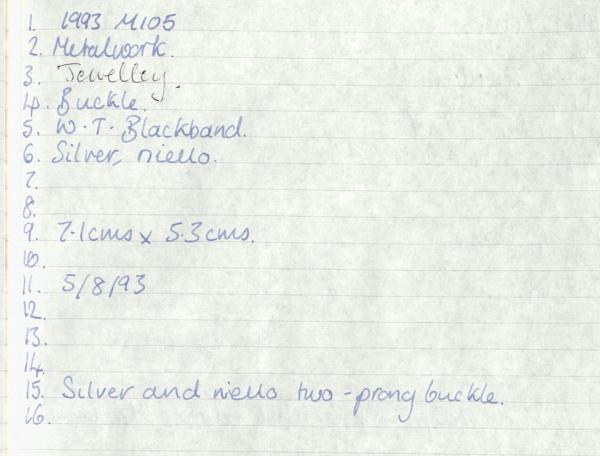 1. 1993 M105
2. Metalwork.
3. Jewelley.
4. Buckle.
5. W.T. Blackband.
6. Silver, niello.
7.
8.
9. 7.1cms x 5.3cms.
10.
11. 5/8/93
12.
13.
14.
15. Silver and niello two-prong buckle.
16.